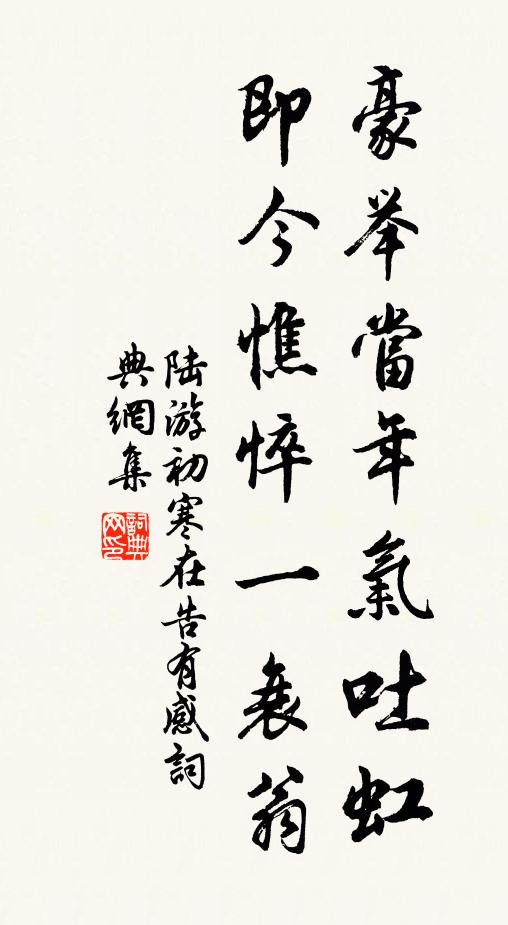 豪举當年氣吐虹
即今憔悴一衰翁
陸游初寒在告有感詞
典網集
詞典
网印